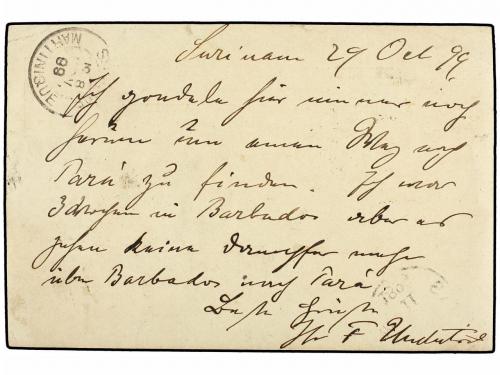 Surinam 29 Oct 99.
Ich gondele hier immer noch
herum um einen Weg nach
Pará zu finden. Ich war
3 Wochen in Barbados aber es
gehen keine Dampfer mehr
über Barbados nach Pará
Beste Grüße
Ihr F
MARTINIQUE